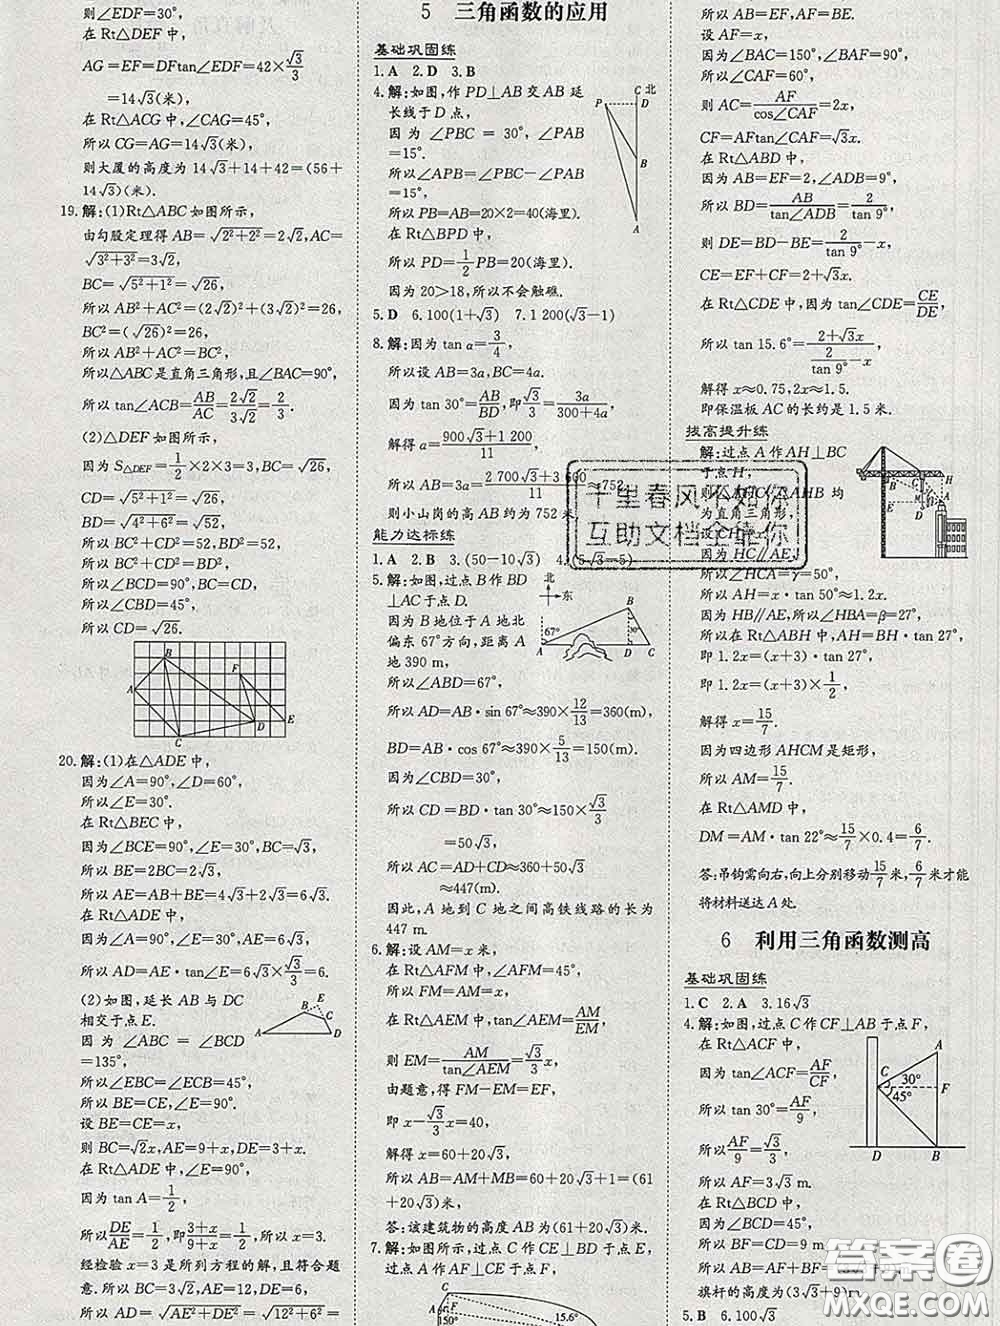 所以∠EDF=30°,
在 Rt△DEF 中,
AG=EF=DFtan∠EDF=42×√3/3
=14√3(米),
在 Rt△ACG 中,∠CAG=45°,
所以 CG=AG=14√3(米),
则大厦的高度为 14√3+14+42=(56+
14√3)(米).
19. 解:(1)Rt△ABC 如图所示,
由勾股定理得 AB=√(2²+2²)=2√2,AC=
√(3²+3²)=3√2,
BC=√(5²+1²)=√26,
所以 AB²+AC²=(2√2)²+(3√2)²=26,
BC²=(√26)²=26,
所以 AB²+AC²=BC²,
所以△ABC 是直角三角形,且∠BAC=90°,
所以 tan∠ACB=AB/AC=2√2/3√2=2/3.
(2)△DEF 如图所示,
因为 S△DEF=1/2×2×3=3,BC=√26,
CD=√(5²+1²)=√26,
BD=√(4²+6²)=√52,
所以 BC²+CD²=BD²,
所以∠BCD=90°,BC=CD,
所以∠CBD=45°,
所以 CD=√26.
A
B
C
D
E
F
20. 解:(1)在△ADE 中,
因为∠A=90°,∠D=60°,
所以∠E=30°.
在 Rt△BEC 中,
∠BCE=90°,∠E=30°,BC=√3,
所以 BE=2BC=2√3,
所以 AE=AB+BE=4√3+2√3=6√3.
在 Rt△ADE 中,
∠A=90°,∠E=30°,AE=6√3,
所以 AD=AE·tan E=6√3×√3/3=6.
(2)如图,延长 AB 与 DC
相交于点 E.
因为∠ABC=∠BCD
=135°,
所以∠EBC=∠ECB=45°,
所以 BE=CE,∠E=90°.
设 BE=CE=x,
则 BC=√2x,AE=9+x,DE=3+x.
在 Rt△ADE 中,∠E=90°,
因为 tan A=1/2,
所以 DE/AE=1/2,即(3+x)/(9+x)=1/2,所以 x=3.
经检验 x=3 是所列方程的解,且符合题
意.所以 BC=3√2,AE=12,DE=6,
所以 AD=√(AE²+DE²)=√(12²+6²)=
A
B
E
C
D
5 三角函数的应用
基础巩固练
1.A 2.D 3.B
4.解:如图,作 PD⊥AB 交 AB 延
长线于 D 点,
因为∠PBC=30°,∠PAB
=15°,
所以∠APB=∠PBC-∠PAB
=15°,
所以 PB=AB=20×2=40(海里).
在 Rt△BPD 中,
所以 PD=1/2PB=20(海里).
因为 20>18,所以不会触礁.
C 北
P
D
B
A
5.D 6.100(1+√3) 7.1 200(√3-1)
8.解:因为 tan α=3/4,
所以设 AB=3a,BC=4a.
因为 tan 30°=AB/BD,即√3/3=3a/(300+4a),
解得 a=(900√3+1 200)/11,
所以 AB=3a=(2 700√3+3 600)/11≈752,
则小山岗的高 AB 约为 752 米.
能力达标练
1.A 2.B 3.(50-10√3) 4.(5√3-5)
5.解:如图,过点 B 作 BD
⊥AC 于点 D.
因为 B 地位于 A 地北
偏东 67°方向,距离 A
地 390 m,
所以∠ABD=67°,
所以 AD=AB·sin 67°≈390×12/13=360(m),
BD=AB·cos 67°≈390×5/13=150(m).
因为∠CBD=30°,
所以 CD=BD·tan 30°≈150×√3/3
=50√3,
所以 AC=AD+CD≈360+50√3
≈447(m).
因此,A 地到 C 地之间高铁线路的长为
447 m.
北
东
B
67°
30°
A
D
C
6.解:设 AM=x 米,
在 Rt△AFM 中,∠AFM=45°,
所以 FM=AM=x,
在 Rt△AEM 中,tan∠AEM=AM/EM,
则 EM=AM/tan∠AEM=√3/3x,
由题意,得 FM-EM=EF,
即 x-√3/3x=40,
解得 x=60+20√3,
所以 AB=AM+MB=60+20√3+1=(61
+20√3)米,
答:该建筑物的高度 AB 为(61+20√3)米.
7.解:如图所示,过点 C 作 CE⊥BD 于点 E,
过点 A 作 AF⊥CE 于点 F,
150°
15.6°
所以 AB=EF,AF=BE.
设 AF=x,
因为∠BAC=150°,∠BAF=90°,
所以∠CAF=60°,
则 AC=AF/cos∠CAF=2x,
CF=AFtan∠CAF=√3x.
在 Rt△ABD 中,
所以 BD=AB/tan∠ADB=2/tan 9°,
则 DE=BD-BE=2/tan 9°-x,
CE=EF+CF=2+√3x.
在 Rt△CDE 中,因为 tan∠CDE=CE/DE,
所以 tan 15.6°=(2+√3x)/(2/tan 9°-x),
解得 x≈0.75,2x≈1.5.
即保温板 AC 的长约是 1.5 米.
拔高提升练
解:过点 A 作 AH⊥BC
于点 H,
均
为直角三角形,
因为 HC∥AE,
所以∠HCA=γ=50°,
所以 AH=x·tan 50°≈1.2x.
因为 HB∥AE,所以∠HBA=β=27°,
所以在 Rt△ABH 中,AH=BH·tan 27°,
即 1.2x=(x+3)·tan 27°,
即 1.2x=(x+3)×1/2,
解得 x=15/7.
因为四边形 AHCM 是矩形,
所以 AM=15/7.
在 Rt△AMD 中,
DM=AM·tan 22°≈15/7×0.4=6/7.
答:吊钩需向右,向上分别移动15/7米,6/7米才能
将材料送达 A 处.
6 利用三角函数测高
基础巩固练
1.C 2.A 3.16√3
4.解:如图,过点 C 作 CF⊥AB 于点 F,
在 Rt△ACF 中,
因为 tan∠ACF=AF/CF,
所以 tan 30°=AF/9,
所以AF/9=√3/3,
所以 AF=3√3 m.
在 Rt△BCD 中,
因为∠BCD=45°,
所以 BF=CD=9 m,
所以 AB=AF+BF=
旗杆的高度为(3√3+9)m.
A
C
30°
F
45°
D
B
5.B 6.100√3
千里春风不如你
互助文档全靠你
答案圈
MXQE.COM